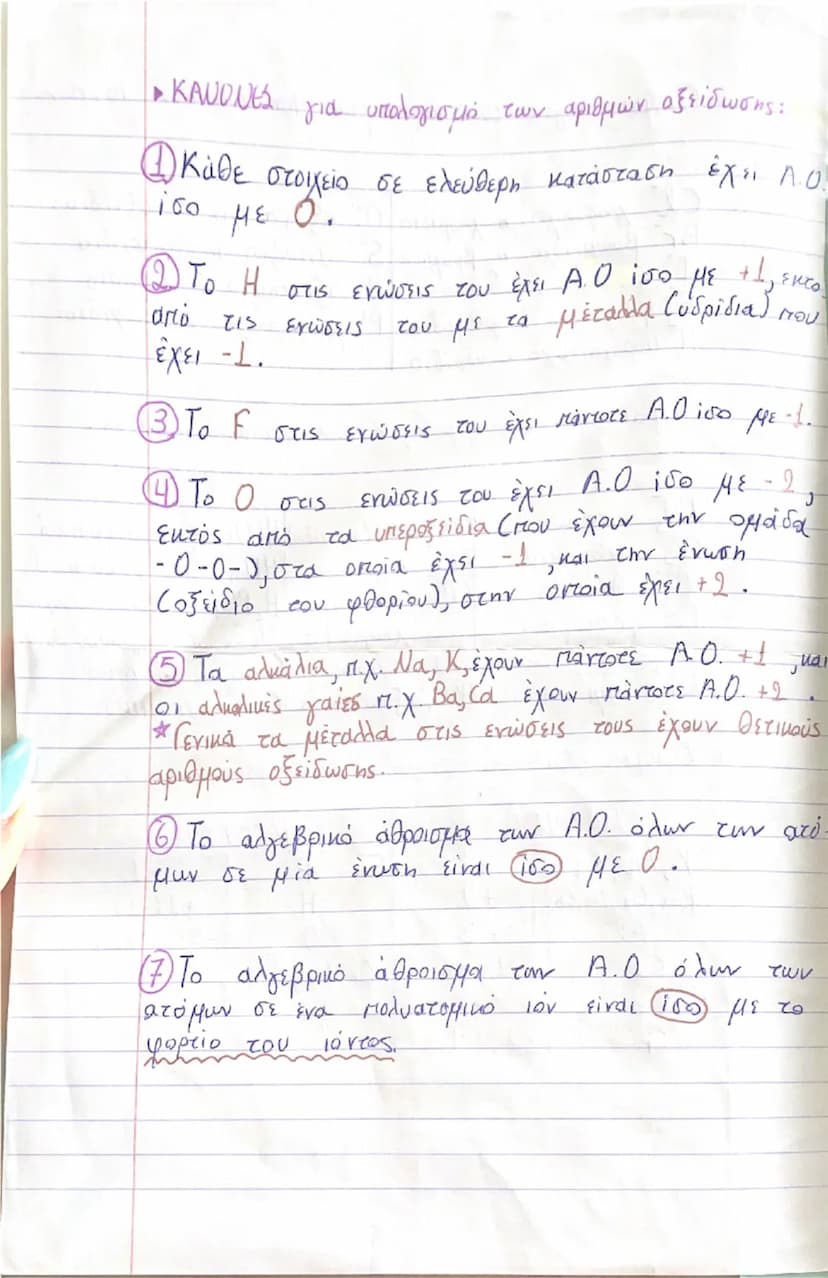 ▸ ΚΑΝΟΝΕΣ για υπολογισμό των αριθμών οξείδωσης:
① Κάθε στοιχείο σε ελεύθερη κατάσταση έχει Α.Ο.
ίσο με 0.
② Το Η στις ενώσεις του έχει Α.Ο ίσο με +1, εκτο
από τις ενώσεις του με τα μέταλλα (υδρίδια) που
έχει -1.
③ Το F στις ενώσεις του έχει πάντοτε Α.Ο ίσο με -1.
④ Το Ο στις ενώσεις του έχει Α.Ο ίσο με -2,
εκτός από τα υπεροξείδια (που έχουν την ομάδα
-Ο-Ο-), στα οποία έχει -1, και την ένωση
(οξείδιο του φθορίου), στην οποία έχει +2.
⑤ Τα αλκάλια, π.χ. Na, K, έχουν πάντοτε Α.Ο. +1, και
οι αλκαλικές γαίες π.χ. Ba, Ca έχουν πάντοτε Α.Ο. +2.
*Γενικά τα μέταλλα στις ενώσεις τους έχουν θετικούς
αριθμούς οξείδωσης.
⑥ Το αλγεβρικό άθροισμα των Α.Ο. όλων των ατό-
μων σε μία ένωση είναι ίσο με 0.
⑦ Το αλγεβρικό άθροισμα των Α.Ο όλων των
ατόμων σε ένα πολυατομικό ιόν είναι ίσο με το
φορτίο του ιόντος.